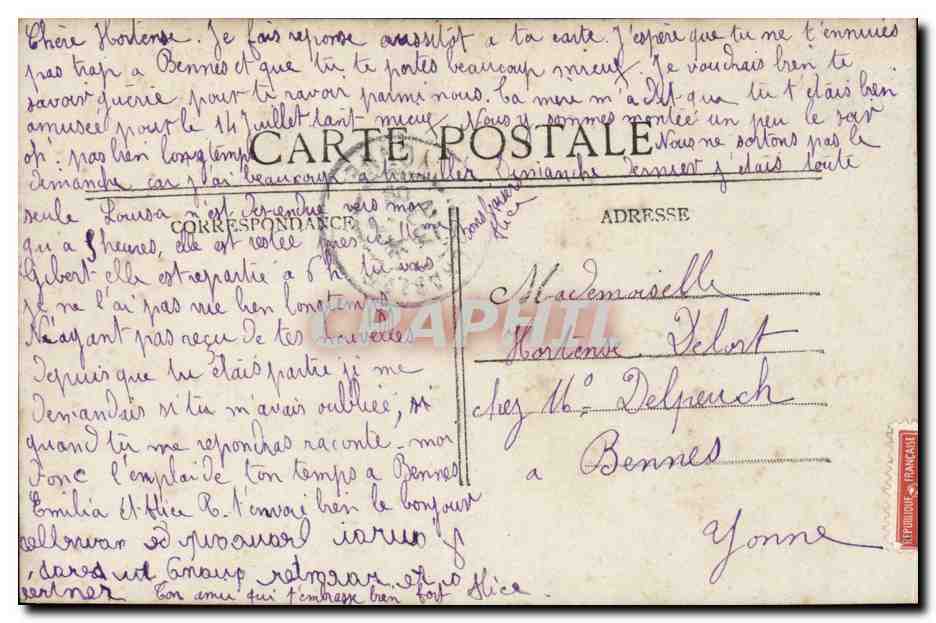 Chère Hortense. Je fais reponse aussitôt a ta carte. J'espère que tu ne t'ennuies
pas trop a Bennes et que tu te portes beaucoup mieux. Je voudrais bien te
savoir guérie pour te ravoir parmi nous. Ta mere m'a dit que tu t'étais bien
amusée pour le 14 Juillet tant mieux. Nous y sommes montée un peu le soir
oh! pas bien longtemps Nous ne sortons pas le
CARTE POSTALE
dimanche car j'ai beaucoup a travailler Dimanche dernier j'étais toute
seule Louisa n'est descendue vers moi
CORRESPONDANCE
qu'a 5 heures, elle est restée près de Mme
Gibert elle est repartie a 6h tu vois
je ne l'ai pas vue bien longtemps
N'ayant pas reçu de tes nouvelles
Depuis que tu étais partie je me
demandais si tu m'avais oubliée, si
quand tu me repondras raconte-moi
donc l'emploi de ton temps a Bennes
Emilia et Alice R. t'envoie bien le bonjour
Ton amie qui t'embrasse bien fort Alice.
bons baisers
Alice
ADRESSE
Mademoiselle
Hortense Delort
chez Mo Delpeuch
a Bennes
Yonne
CPAPHIL
REPUBLIQUE FRANÇAISE